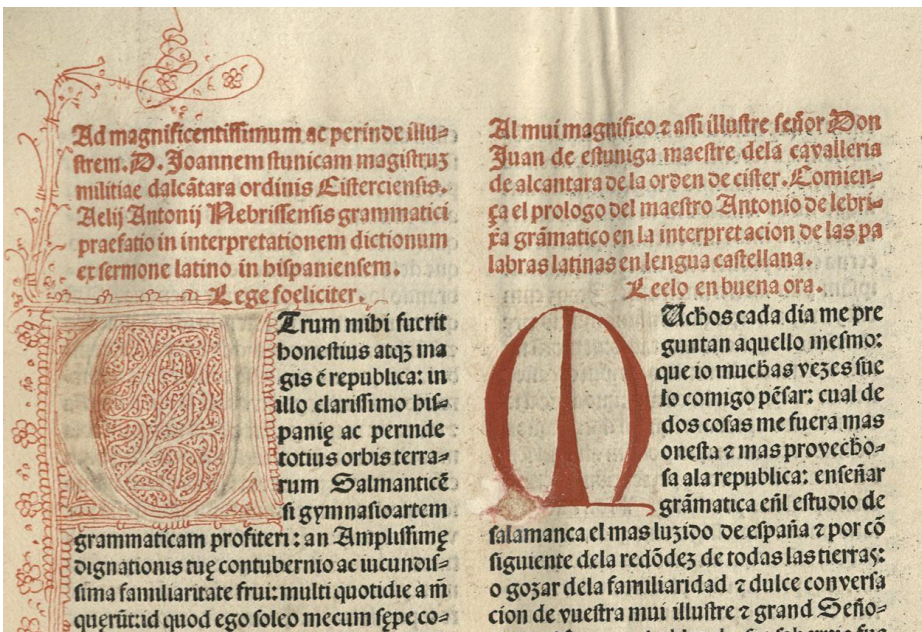 Ad magnificentissimum ac perinde illu-
strem.D. Joannem stunicam magistruʒ
militiae dalcãtara ordinis Cisterciensis.
Aelij Antonij Nebrissensis grammatici
praefatio in interpretationem dictionum
ex sermone latino in hispaniensem.
Lege foeliciter.
UTrum mihi fuerit
honestius atqʒ ma
gis ẽ republica: in
illo clarissimo his-
panię ac perinde
totius orbis terra-
rum Salmanticẽ
si gymnasio artem
grammaticam profiteri: an Amplissimę
dignationis tuę contubernio ac iucundis-
sima familiaritate frui: multi quotidie a m̃
querũt: id quod ego soleo mecum sępe co-
Al mui magnifico. ⁊ assi illustre señor Don
Juan de estuniga maestre dela cavalleria
de alcantara de la orden de cister. Comien-
ça el prologo del maestro Antonio de lebri-
xa grãmatico en la interpretacion de las pa
labras latinas en lengua castellana.
Leelo en buena ora.
MUchos cada dia me pre
guntan aquello mesmo:
que io muchas vezes sue
lo comigo pẽsar: cual de
dos cosas me fuera mas
onesta ⁊ mas provecho-
sa ala republica: enseñar
grãmatica eñl estudio de
salamanca el mas luzido de españa ⁊ por cõ
siguiente dela redõdez de todas las tierras:
o gozar dela familiaridad ⁊ dulce conversa
cion de vuestra mui illustre ⁊ grand Seño-